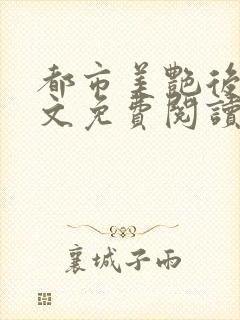 都市美艷後
文免費閱讀
襄城子雨